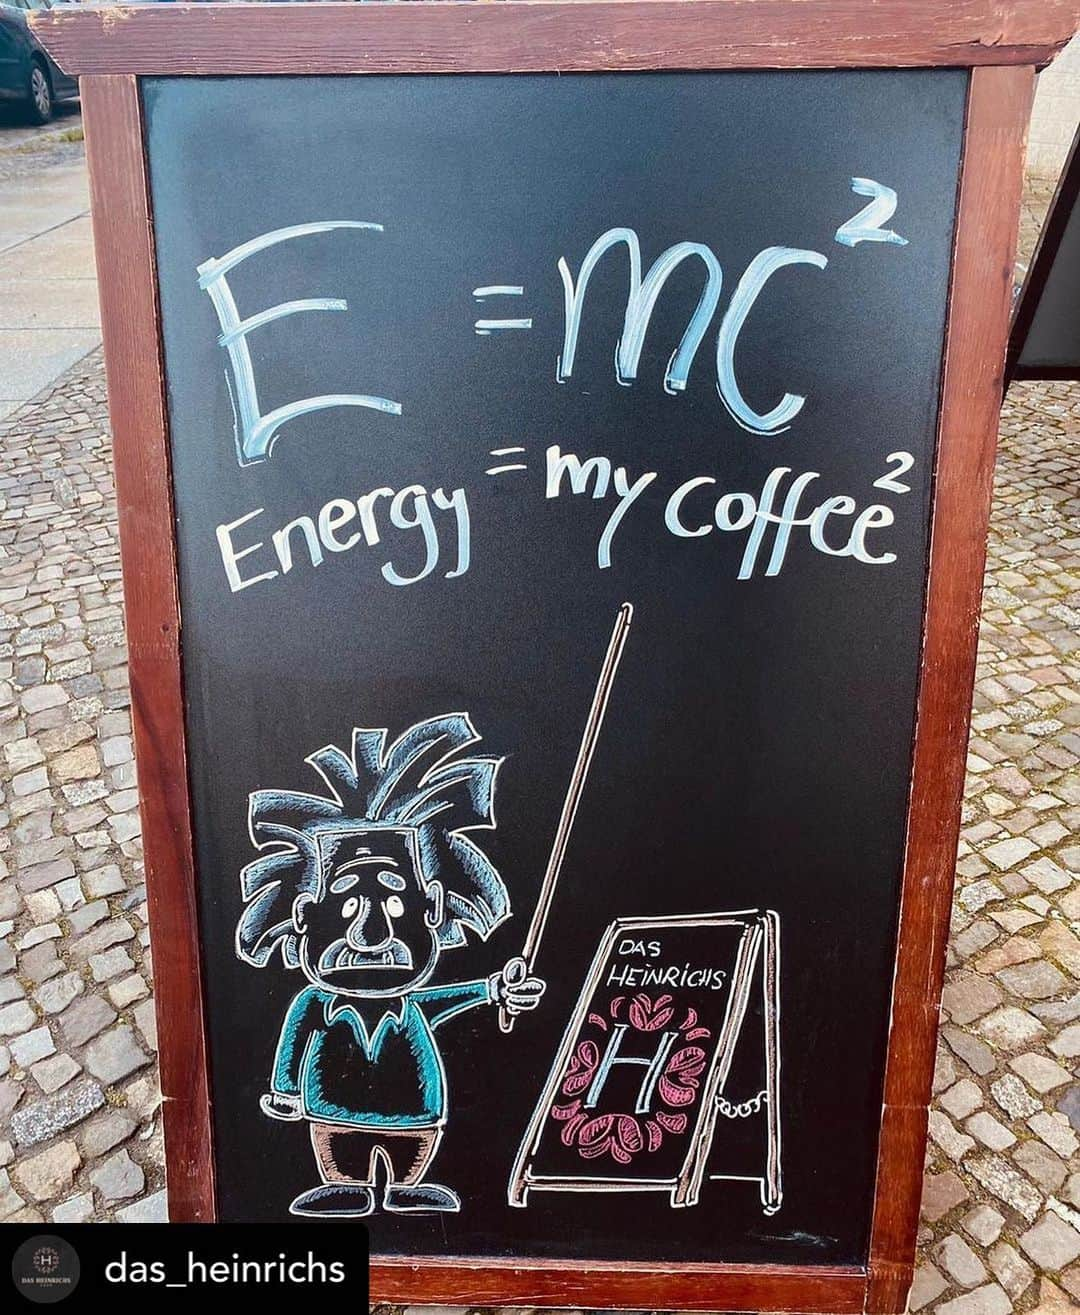 E = mc²
Energy = my coffee²
DAS
HEINRICHS
H
H
DAS HEINRICHS
das_heinrichs